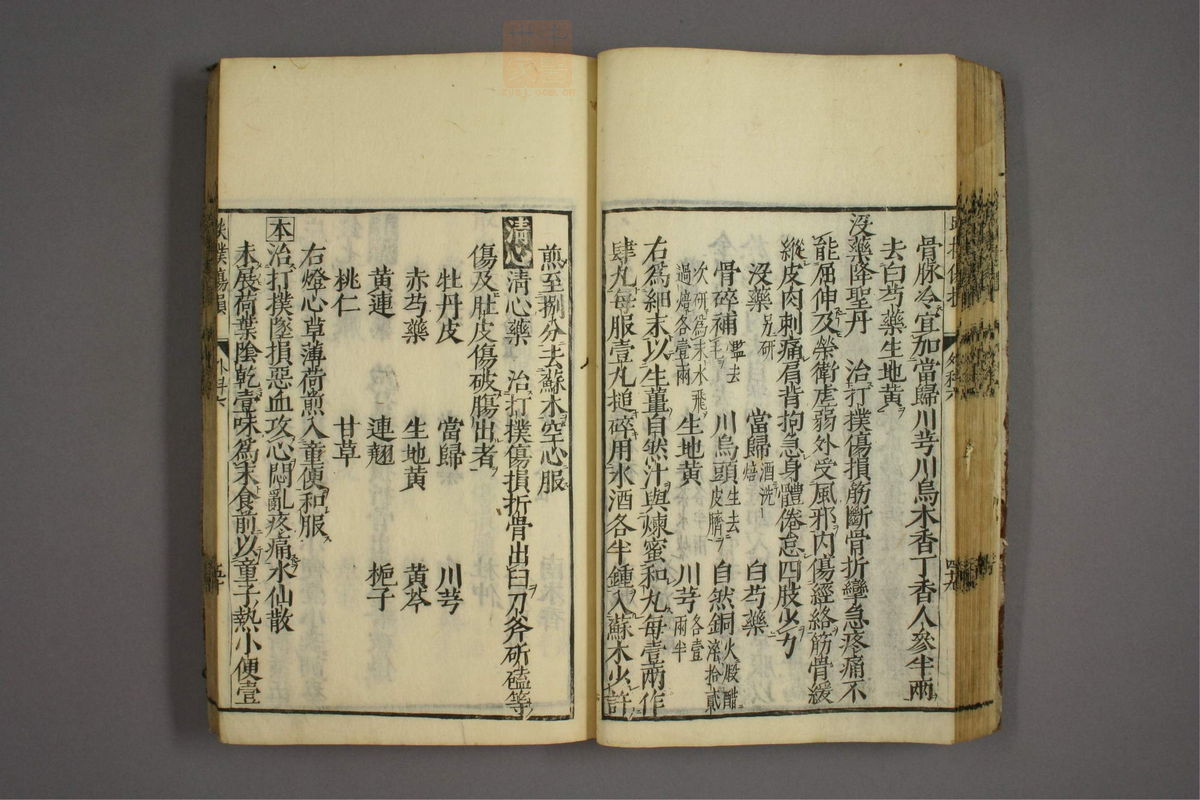 骨脉冷宜加當歸川芎川烏木香丁香人參半兩
去白芍藥生地黄
没藥降聖丹 治打撲傷損筋斷骨折攣急疼痛不
能屈伸及榮衛虚弱外受風邪内傷經絡筋骨緩
縱皮肉刺痛肩背拘急身體倦怠四肢少力
没藥另研 當歸酒洗焙 白芍藥
骨碎補去毛 川烏頭生去皮臍 自然銅火煅醋淬拾貳
次研爲末水飛過焙各壹兩 生地黄 川芎各壹兩半
右爲細末以生薑自然汁與煉蜜和丸每壹兩作
肆丸每服壹丸搥碎用水酒各半鍾入蘇木少許
煎至捌分去蘇木空心服
清心 清心藥 治打撲傷損折骨出臼刀斧斫磕等
傷及肚皮傷破腸出者
牡丹皮 當歸 川芎
赤芍藥 生地黄 黄芩
黄連 連翹 梔子
桃仁 甘草
右燈心草薄荷煎入童便和服
本 治打撲墜損惡血攻心悶亂疼痛水仙散
未展荷葉陰乾壹味爲末食前以童子熱小便壹